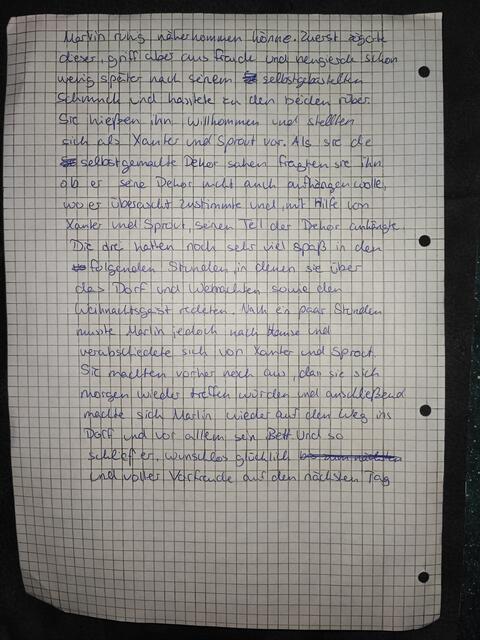 Marlin ruhig näherkommen könne. Zuerst zögerte
dieser, griff aber aus Freude und neugierde schon
wenig später nach seinem selbstgebastelten
Schmuck und hastete zu den beiden rüber.
Sie hießen ihn willkommen und stellten
sich als Xanter und Sprout vor. Als sie die
selbstgemachte Dekor sahen fragten sie ihn
ob er seine Dekor nicht auch aufhängen wolle,
wo er überrascht zustimmte und, mit Hilfe von
Xanter und Sprout, seinen Teil der Dekor anhängte.
Die drei hatten noch sehr viel spaß in den
folgenden Stunden, in denen sie über
das Dorf und Weihnachten sowie den
Weihnachtsgeist redeten. Nach ein paar Stunden
musste Marlin jedoch nach Hause und
verabschiedete sich von Xanter und Sprout.
Sie machten vorher noch aus, dass sie sich
morgen wieder treffen würden und anschließend
machte sich Marlin wieder auf den Weg ins
Dorf und vor allem sein Bett. Und so
schlief er, wunschlos glücklich
und voller Vorfreude auf den nächsten Tag